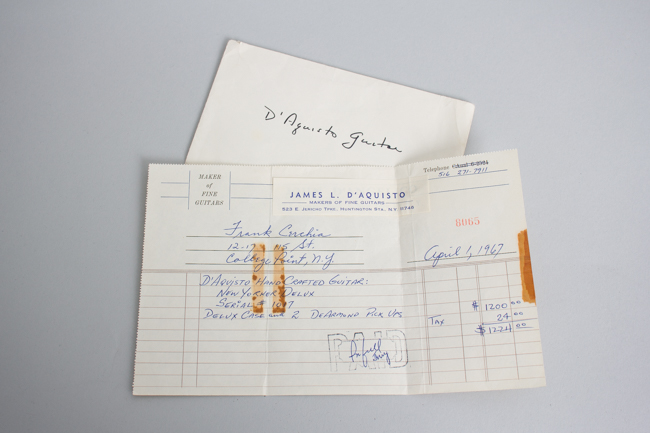 D'Aquisto Guitar
MAKER
of
FINE
GUITARS
JAMES L. D'AQUISTO
MAKERS OF FINE GUITARS
523 E. JERICHO TPKE, HUNTINGTON STA., N.Y. 11746
Telephone
516 271-7911
8065
Frank
12-17 115 St.
College Point, N.Y.
April 1, 1967
D'AQUISTO HAND CRAFTED GUITAR:
NEW YORKER DELUX
SERIAL #
DELUX CASE and 2 DEARMOND PICK UPS
$ 1200 00
TAX 24 00
$ 1224 00
PAID